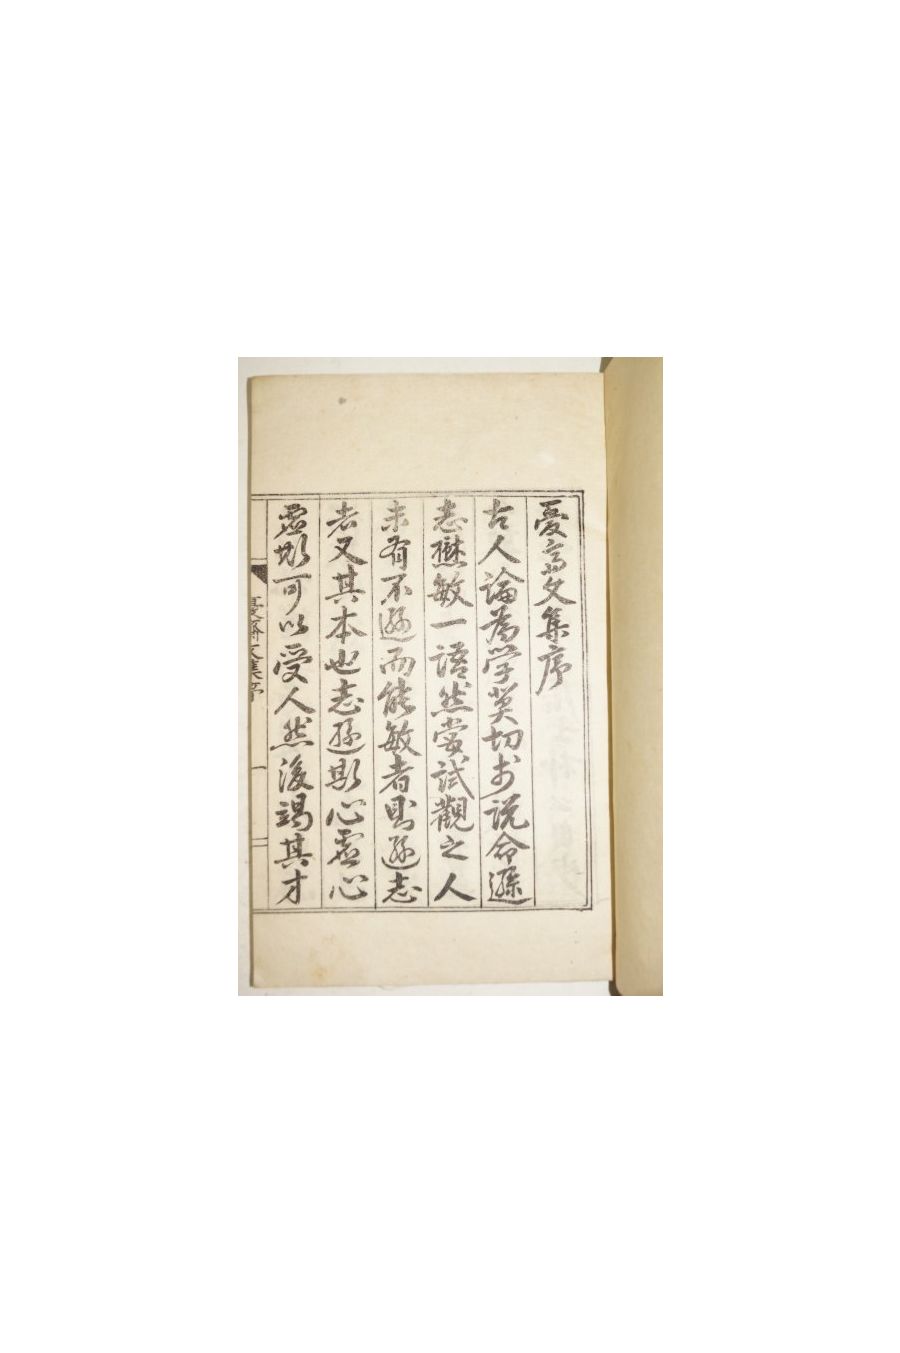 憂齋文集序
古人論為學莫切於說命遜
志懋敏一語然嘗試觀之人
未有不遜而能敏者則遜志
者又其本也志遜斯心虛心
虛斯可以受人然後竭其才
憂齋文集序
一